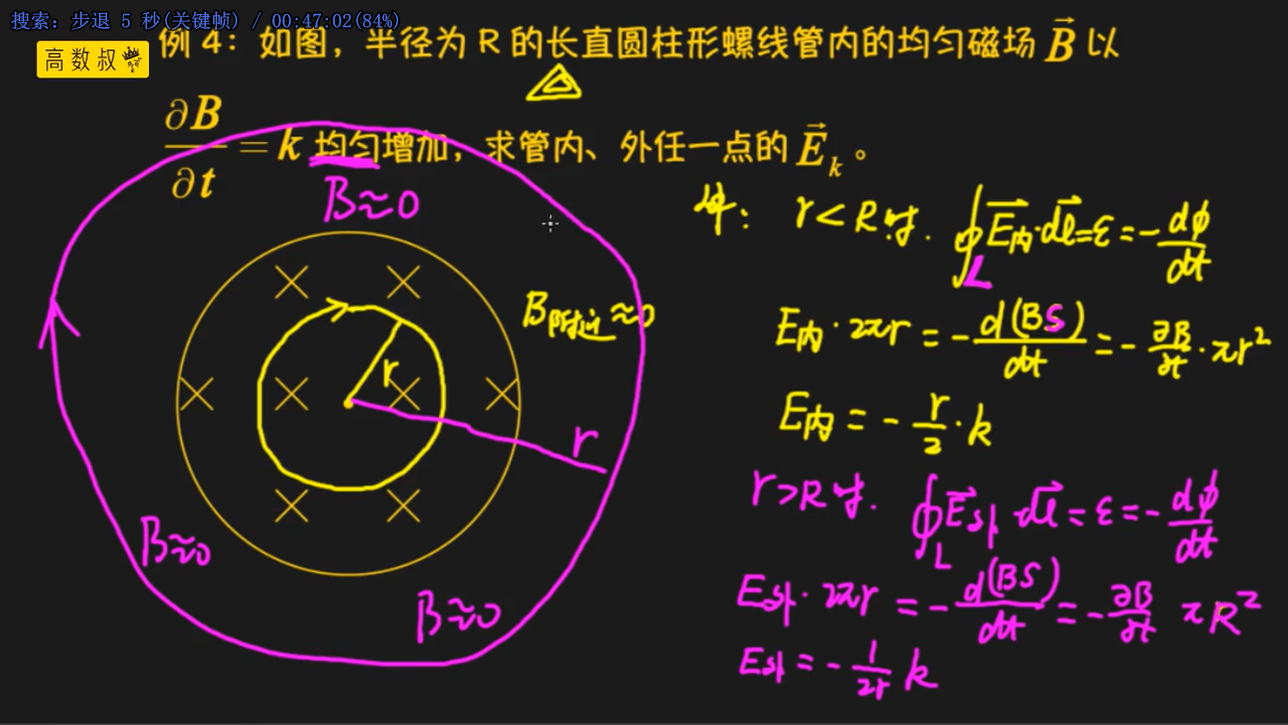 搜索: 步退 5 秒(关键帧) / 00:47:02(84%)
高数叔
例 4：如图，半径为 R 的长直圆柱形螺线管内的均匀磁场 B⃗ 以
∂B/∂t = k 均匀增加，求管内、外任一点的 E⃗k 。
B≈0
B附近≈0
r
r
B≈0
B≈0
解: r<R时. ∮L E⃗内·dl⃗=ε=-dφ/dt
E内·2πr = -d(BS)/dt = -∂B/∂t·πr²
E内 = -r/2·k
r>R时. ∮L E⃗外·dl⃗=ε=-dφ/dt
E外·2πr = -d(BS)/dt = -∂B/∂t πR²
E外 = -1/2r k